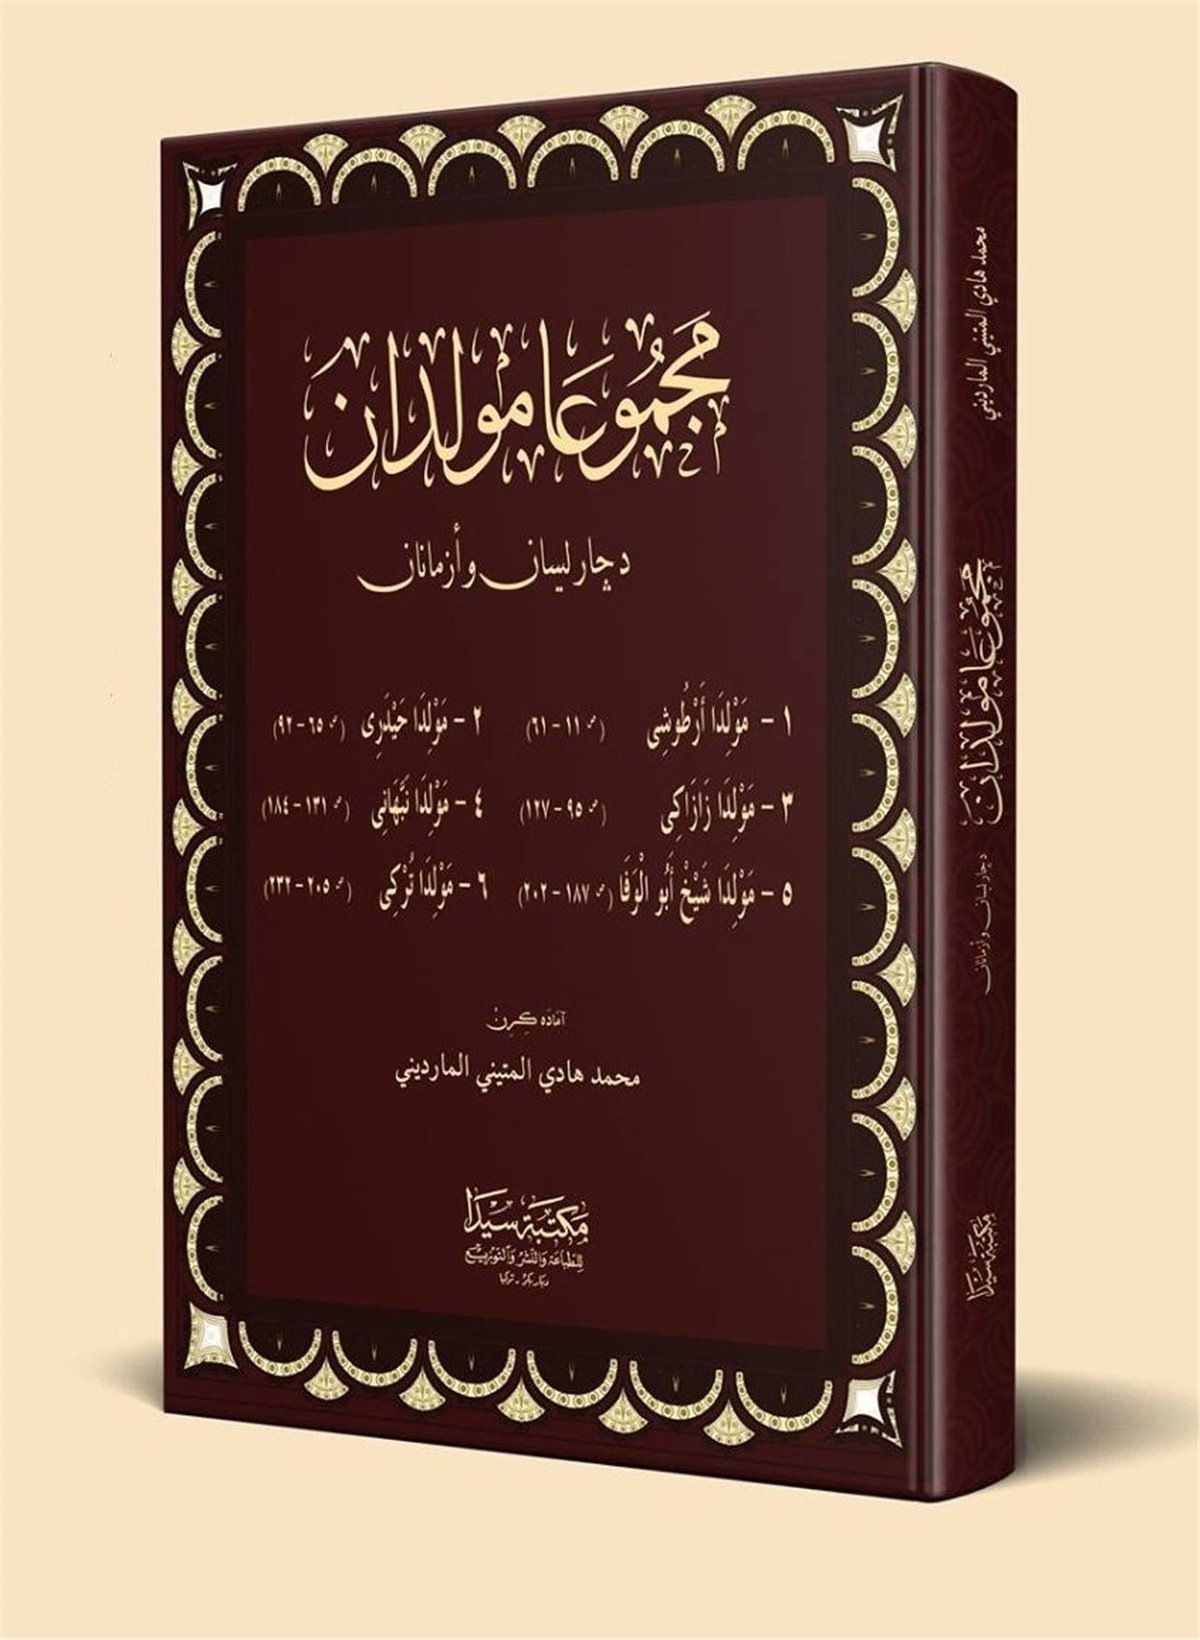 مَجْمُوعَا مولدان
د چار لیسان و أزمانان
١ - مَوْلِدَا أَرْطُوشِى (ص ١١ - ٦١) ٢ - مَوْلِدَا حَيْدَرِى (ص ٦٥ - ٩٢)
٣ - مَوْلِدَا زَازَاكِى (ص ٩٥ - ١٢٧) ٤ - مَوْلِدَا نَبَهَانِى (ص ١٣١ - ١٨٤)
٥ - مَوْلِدَا شَيْخْ أَبُو الْوَفَا (ص ١٨٧ - ٢٠٢) ٦ - مَوْلِدَا تُرْكِى (ص ٢٠٥ - ٢٣٢)
آماده کرن
محمد هادي المتيني المارديني
مكتبة سيدا
للطباعة والنشر والتوزيع
ديار بكر - تركيا
محمد هادي المتيني المارديني
مَجْمُوعَا مولدان
د چار لیسان و أزمانان
مكتبة سيدا